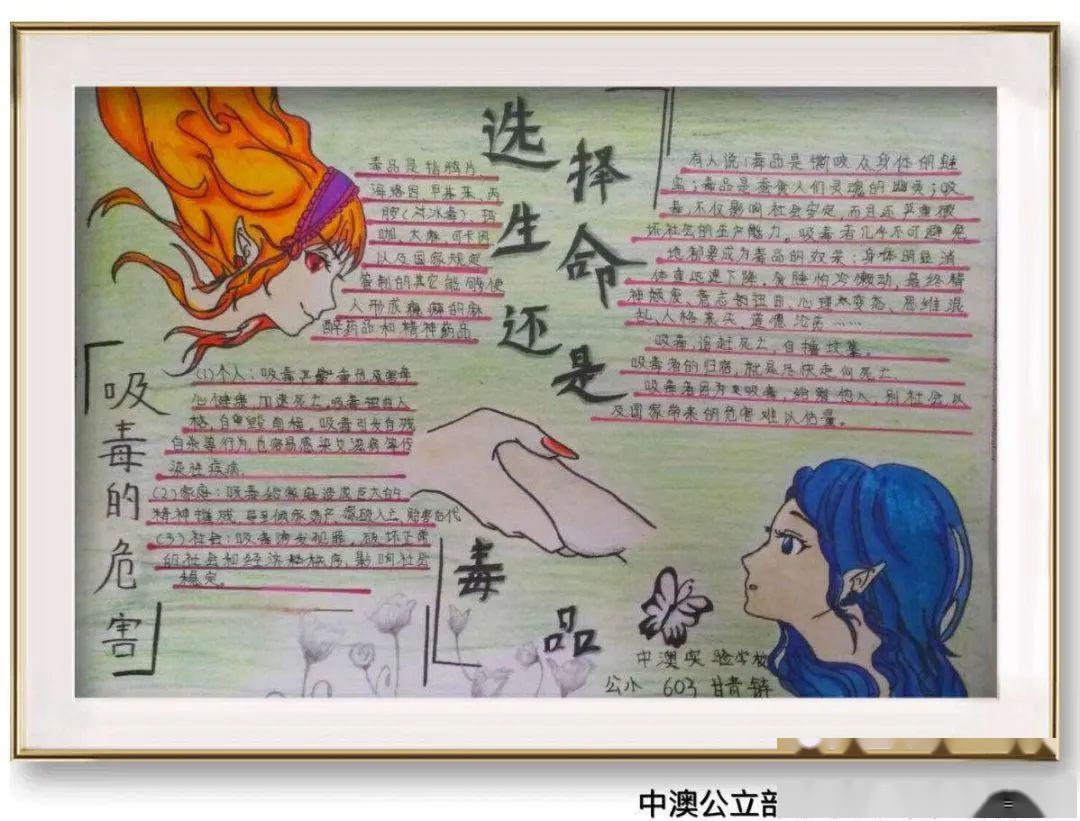 选择生命还是毒品
毒品是指鸦片、
海洛因、甲基苯丙
胺(冰毒)、吗
啡、大麻、可卡因
以及国家规定
管制的其它能够使
人形成瘾癖的麻
醉药品和精神药品
有人说:毒品是撕咬众身体的
毒品是蚕食人们灵魂的幽灵;吸
毒,不仅影响社会安定,而且还严重破
坏社会的生产能力。吸毒者几乎不可避免
地都要成为毒品的奴隶:身体明显消
体重迅速下降,贪睡怕冷懒动,最终精
神颓废、意志、心理变态、思维混
乱、人格丧失、道德沦丧……
吸毒,追赶死亡,自掘坟墓。
吸毒者的归宿,就是尽快走向死亡
吸毒者因为吸毒,给他人,别社会以
及国家带来的危害难以估量。
吸毒的危害
(1)个人:吸毒严重危害
心健康,加速死亡,吸毒扭曲人
格,自毁前程。吸毒引发自残
自杀等行为,也容易感染艾滋病等传
染性疾病.
(2)家庭:吸毒给家庭造成巨大的
精神摧残,导至倾家荡产,家破人亡,贻害后代
(3)社会:吸毒诱发犯罪,破坏正常
的社会和经济秩序,影响社会
稳定。
中澳实验学校
公小 603 甘青
中澳公立部